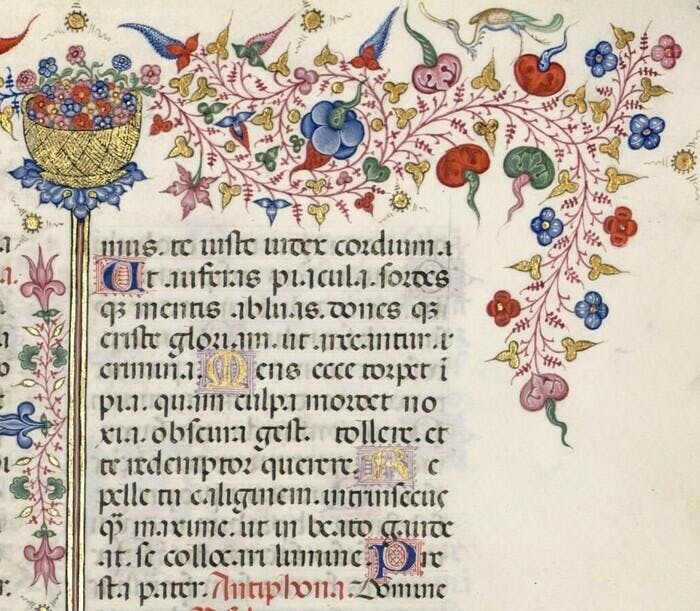 mus. te iuste iudex cordium.a
Ut auferas piacula. sordes
q3 mentis abluas. dones q3
criste gloriam. ut arceantur. r
crimin.a. Mens ecce torpet i
pia. quam culpa mordet no
xia. obscura gest. tollere. et
te redemptor querere. Re
pelle tu caliginem. intrinsecus
q̃ maxime. ut in beato gaude
at. se collocari lumine. Pre
sta pater. Antiphona. Domine